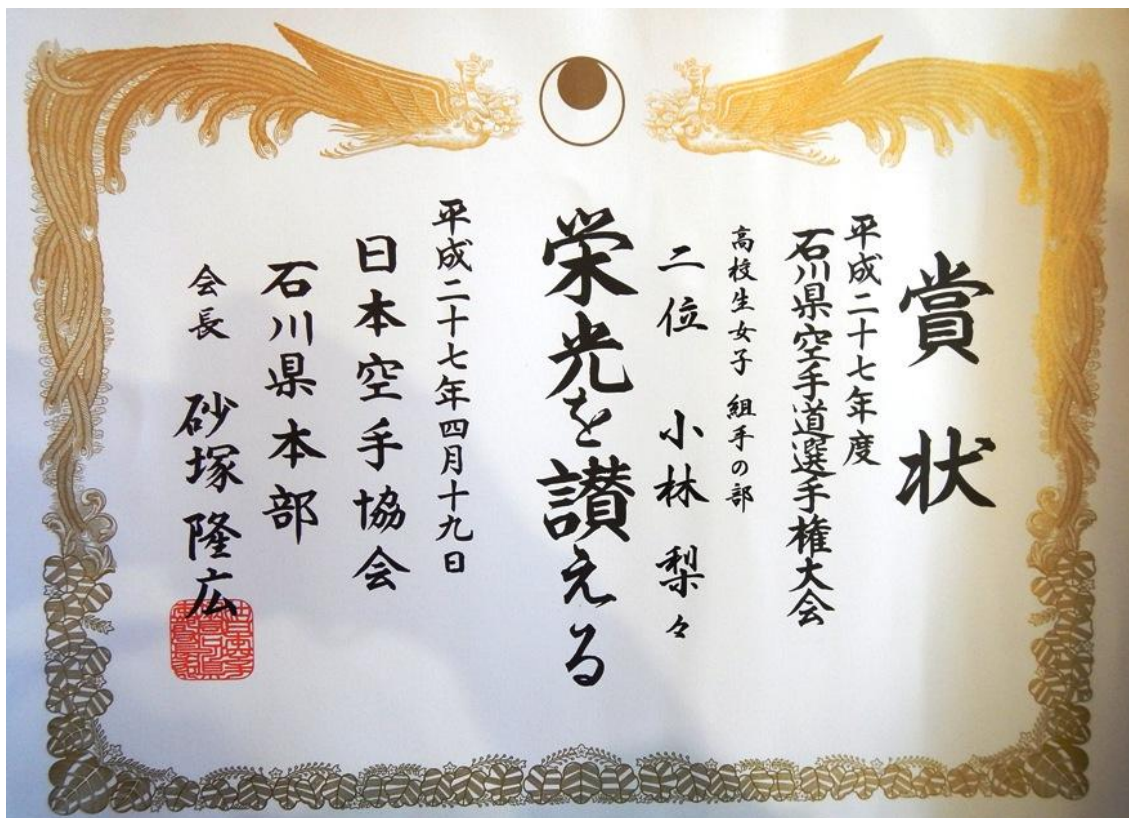 賞状
平成二十七年度
石川県空手道選手権大会
高校生女子 組手の部
二位 小林 梨々
栄光を讃える
平成二十七年四月十九日
日本空手協会
石川県本部
会長 砂塚 隆広